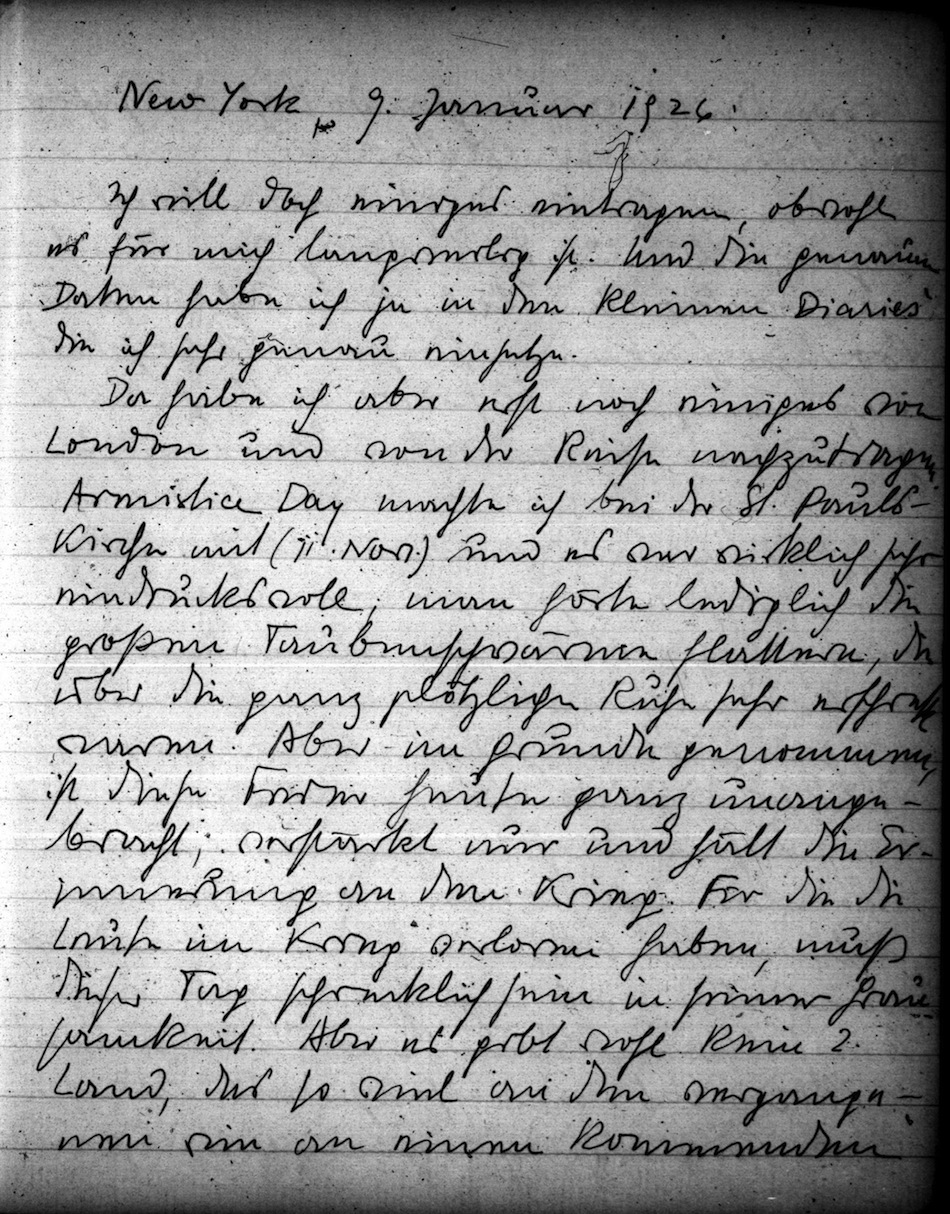 New York, 9. Januar 1926:
Ich will doch einiges eintragen, obwohl
es für mich langweilig ist. Und die genauen
Daten habe ich ja in den kleinen Diaries
die ich sehr genau einsetze.
Da habe ich aber erst noch einiges von
London und von der Reise nachzutragen.
Armistice Day machte ich bei der St. Pauls-
Kirche mit (11. Nov.) und es war wirklich sehr
eindrucksvoll, man hörte lediglich die
großen Taubenschwärme flattern, die
über die ganz plötzliche Ruhe sehr erschreckt
waren. Aber im Grunde genommen,
ist diese Feier heute ganz unange-
bracht; verstärkt nur und hält die Er-
innerung an den Krieg. Für die die
Leute im Krieg verloren haben, muß
dieser Tag schrecklich sein in seiner Grau-
samkeit. Aber es gibt wohl kein 2.
Land, das so viel an den vergange-
nen wie an einen kommenden